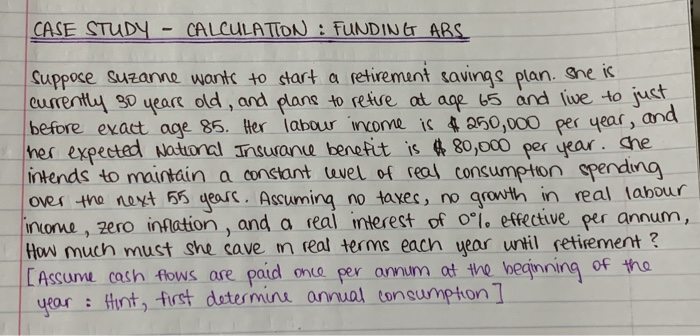 CASE STUDY - CALCULATION : FUNDING ARS
Suppose Suzanne wants to start a retirement savings plan. She is
currently 30 years old, and plans to retire at age 65 and live to just
before exact age 85. Her labour income is $250,000 per year, and
her expected National Insurance benefit is $80,000 per year. She
intends to maintain a constant level of real consumption spending
over the next 55 years. Assuming no taxes, no growth in real labour
income, zero inflation, and a real interest of 0% effective per annum,
How much must she save in real terms each year until retirement?
[Assume cash flows are paid once per annum at the beginning of the
year : Hint, first determine annual consumption]